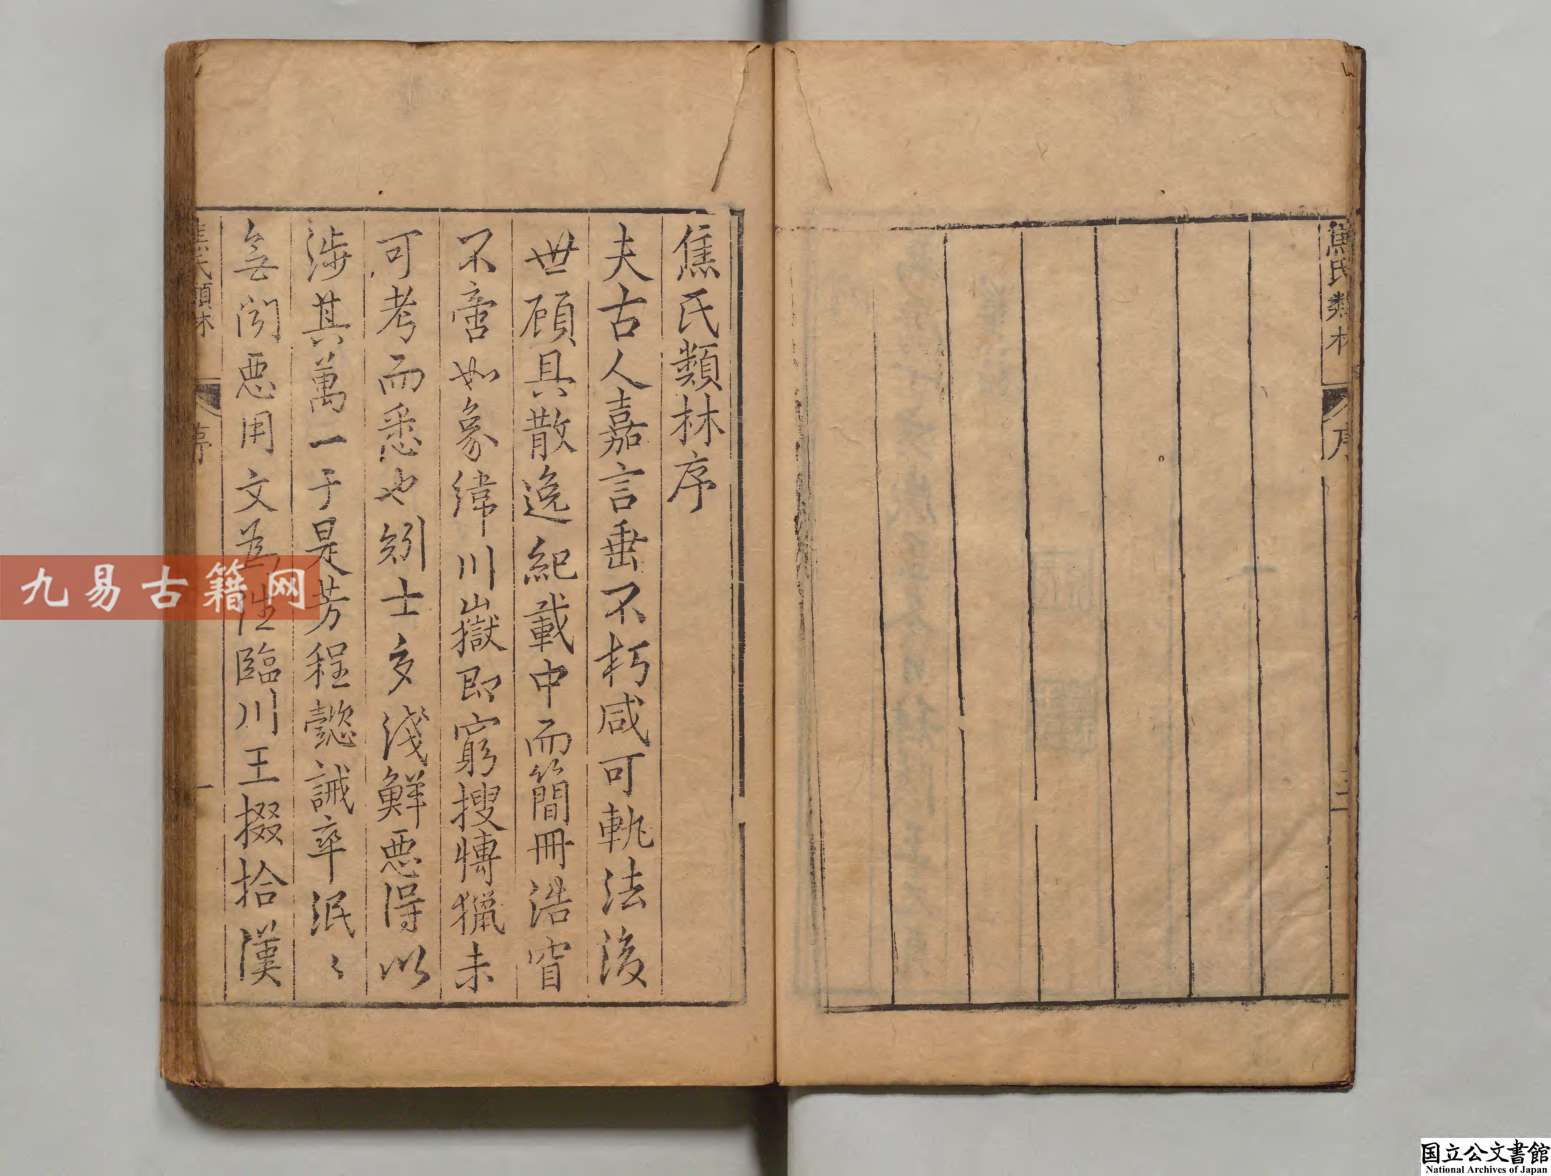 焦氏類林
序
三
焦氏類林序
夫古人嘉言垂不朽咸可軌法後
世顧具散逸紀載中而簡冊浩窅
不啻如象緯川嶽即窮搜博獵未
可考而悉也矧士多淺鮮惡得以
涉其萬一于是芳程懿誡率泯〻
無聞惡用文為性臨川王掇拾漢
焦氏類林
序
一
九易古籍网
国立公文書館
National Archives of Japan